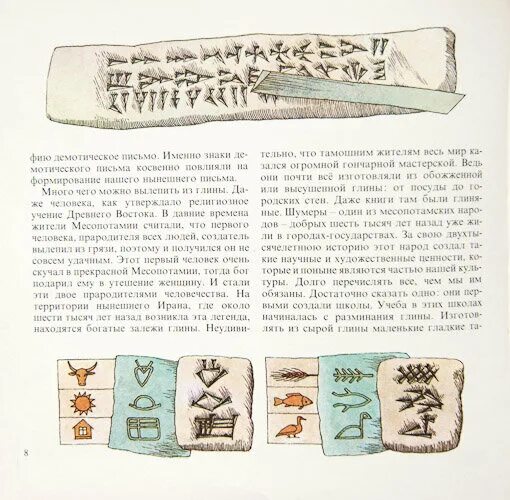 фию демотическое письмо. Именно знаки де-
мотического письма косвенно повлияли на
формирование нашего нынешнего письма.
Много чего можно вылепить из глины. Да-
же человека, как утверждало религиозное
учение Древнего Востока. В давние времена
жители Месопотамии считали, что первого
человека, прародителя всех людей, создатель
вылепил из грязи, поэтому и получился он не
совсем удачным. Этот первый человек очень
скучал в прекрасной Месопотамии, тогда бог
подарил ему в утешение женщину. И стали
эти двое прародителями человечества. На
территории нынешнего Ирана, где около
шести тысяч лет назад возникла эта легенда,
находятся богатые залежи глины. Неудиви-
тельно, что тамошним жителям весь мир ка-
зался огромной гончарной мастерской. Ведь
они почти всё изготовляли из обожжённой
или высушенной глины: от посуды до го-
родских стен. Даже книги там были глиня-
ные. Шумеры – один из месопотамских наро-
дов – добрых шесть тысяч лет назад уже жи-
ли в городах-государствах. За свою двухты-
сячелетнюю историю этот народ создал та-
кие научные и художественные ценности, ко-
торые и поныне являются частью нашей куль-
туры. Долго перечислять все, чем мы им
обязаны. Достаточно сказать одно: они пер-
выми создали школы. Учеба в этих школах
начиналась с разминания глины. Изготов-
лять из сырой глины маленькие гладкие та-
8